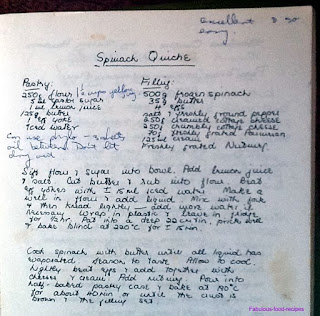 Excellent & so
easy
Spinach Quiche
Pastry
250g flour
5 ml caster sugar
1 ml lemon juice
125g butter
1 egg yolk
Iced water
Filling
500g frozen spinach
35g butter
4 eggs
salt & freshly ground pepper
250g creamed cottage cheese
250g crumbly cottage cheese
freshly grated Parmesan
cream
Freshly grated Nutmeg
Sift flour & sugar into bowl. Add lemon juice
& salt. Cut butter & rub into flour. Beat
egg yolks with 15 ml iced water. Make a
well in flour & add liquid. Mix with fork
& then knead lightly – add more water if
necessary. Wrap in plastic & leave in fridge
for 12 hrs. Put into a deep 22 cm tin, prick base
& bake blind at 220°C for 15 min
Cook spinach with butter until all liquid has
evaporated. Season to taste. Allow to cool.
Lightly beat eggs & add together with
cheeses & cream. Add nutmeg. Pour into
half-baked pastry case & bake at 190°C
for about 40 min or until the crust is
brown & the filling set
Fabulous-food-recipes